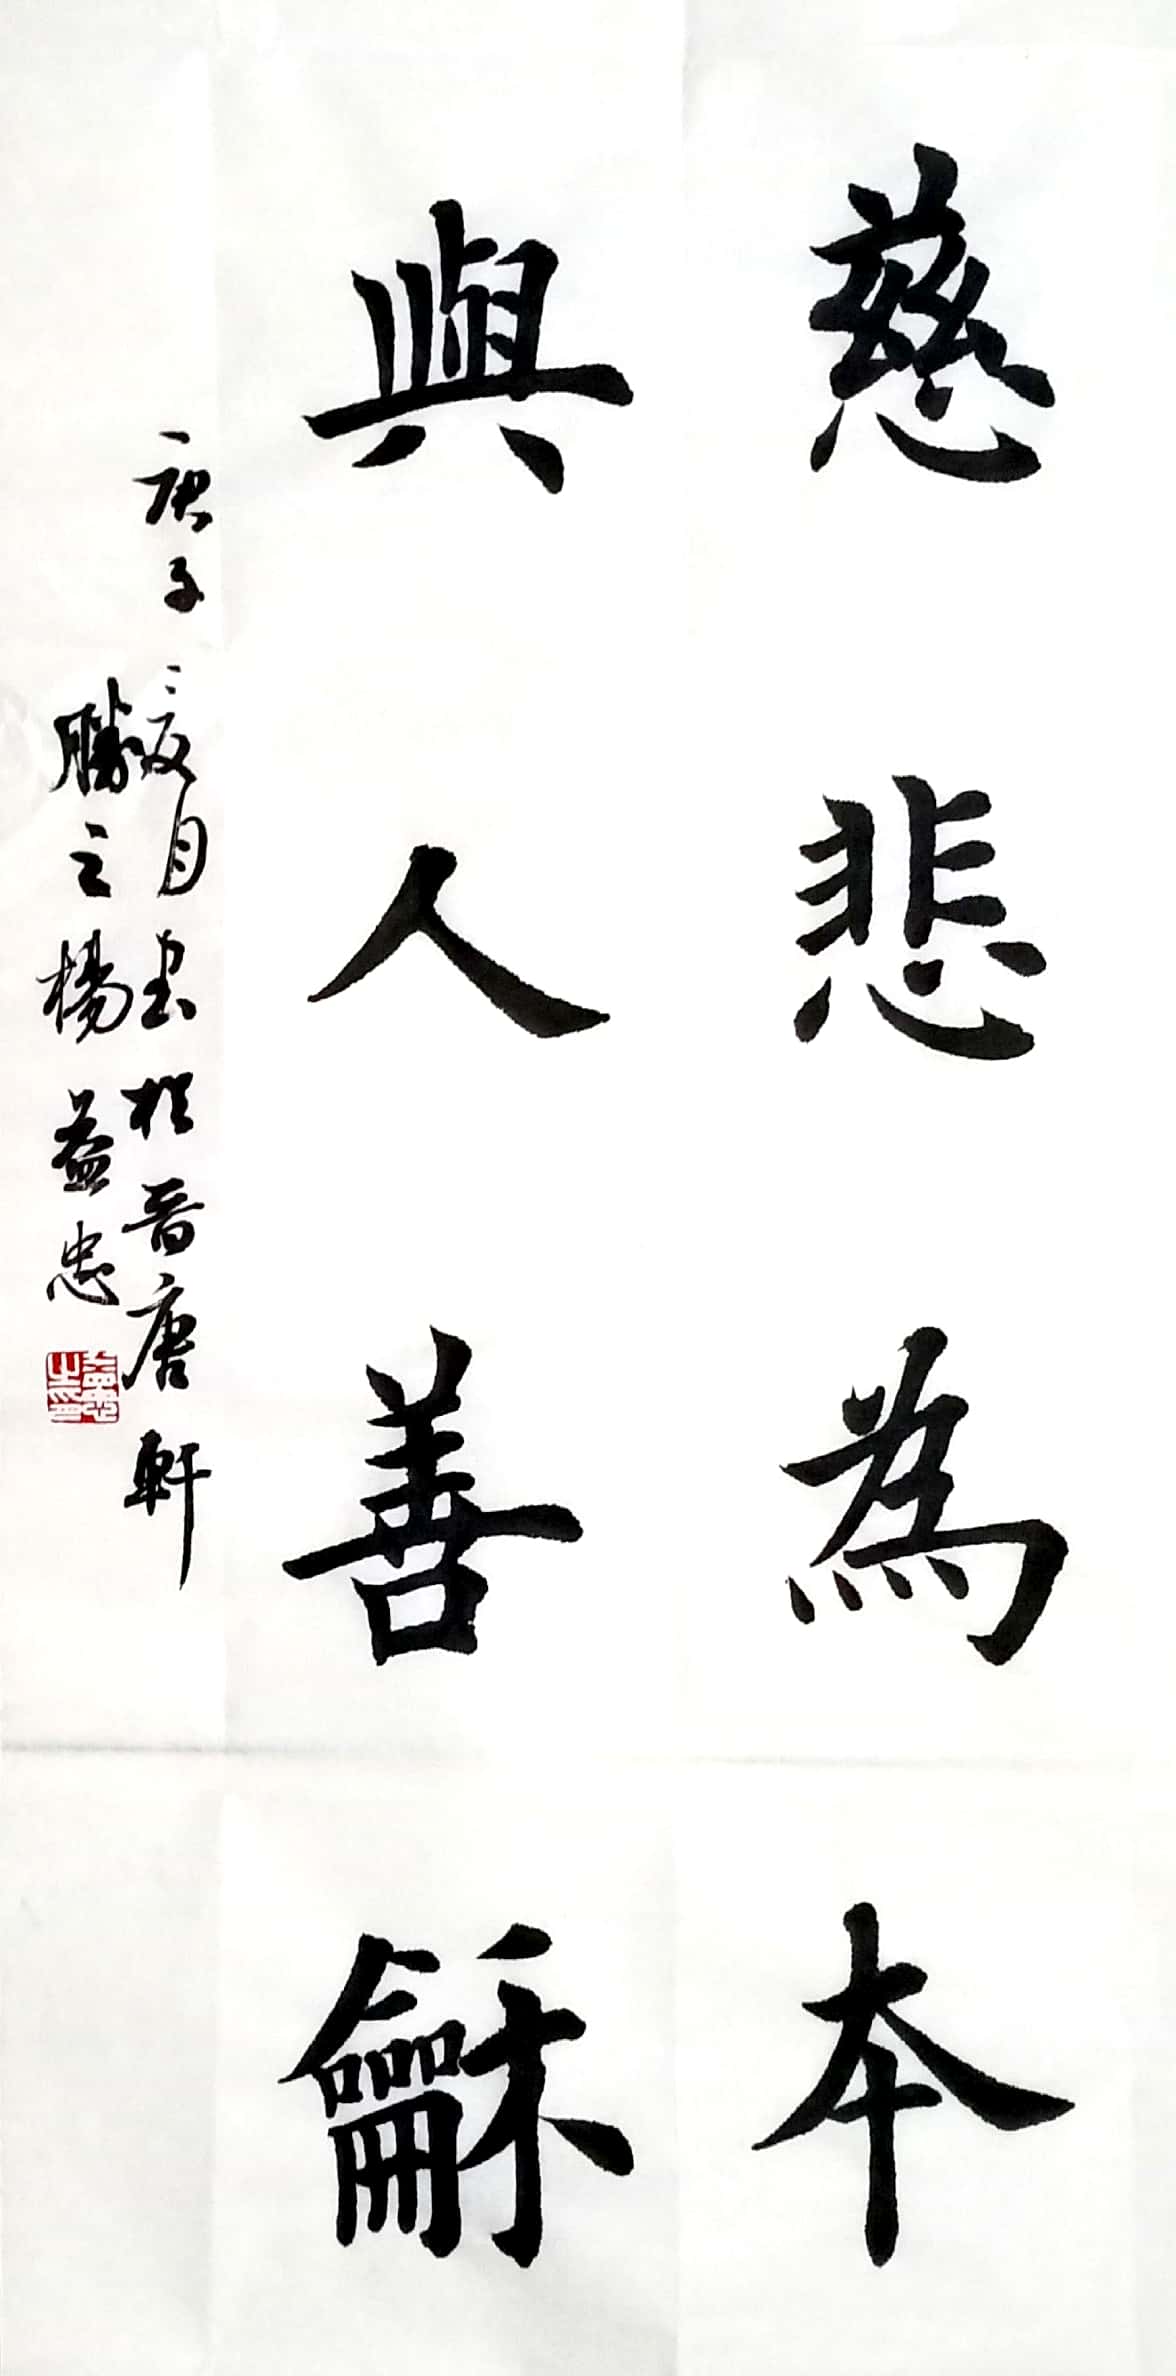 慈悲為本
與人善龢
庚子夏月書於晉唐軒
勝之楊益忠
益忠之印